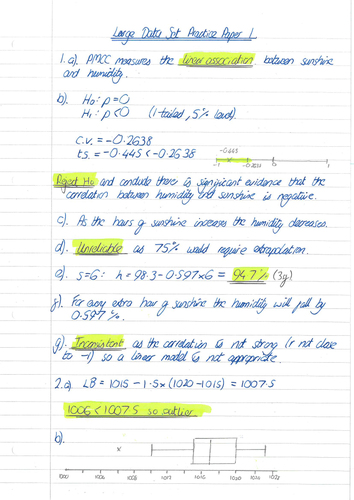 Large Data Set Practice Paper 1
1.a). PMCC measures the linear association between sunshine
and humidity.
b). H₀: ρ=0
H₁: ρ<0 (1-tailed, 5% level)
c.v. = -0.2638
t.s. = -0.445 < -0.2638
-0.445
-1 -0.2638 0 1
Reject H₀ and conclude there is significant evidence that the
correlation between humidity and sunshine is negative.
c). As the hours of sunshine increases the humidity decreases.
d). Unreliable as 75% would require extrapolation.
e). s=6: h = 98.3-0.597×6 = 94.7% (3sf)
f). For every extra hour of sunshine the humidity will fall by
0.597%.
g). Inconsistent as the correlation is not strong (r not close
to -1) so a linear model is not appropriate.
2.a) LB = 1015 - 1.5×(1020-1015) = 1007.5
1006 < 1007.5 so outlier
b).